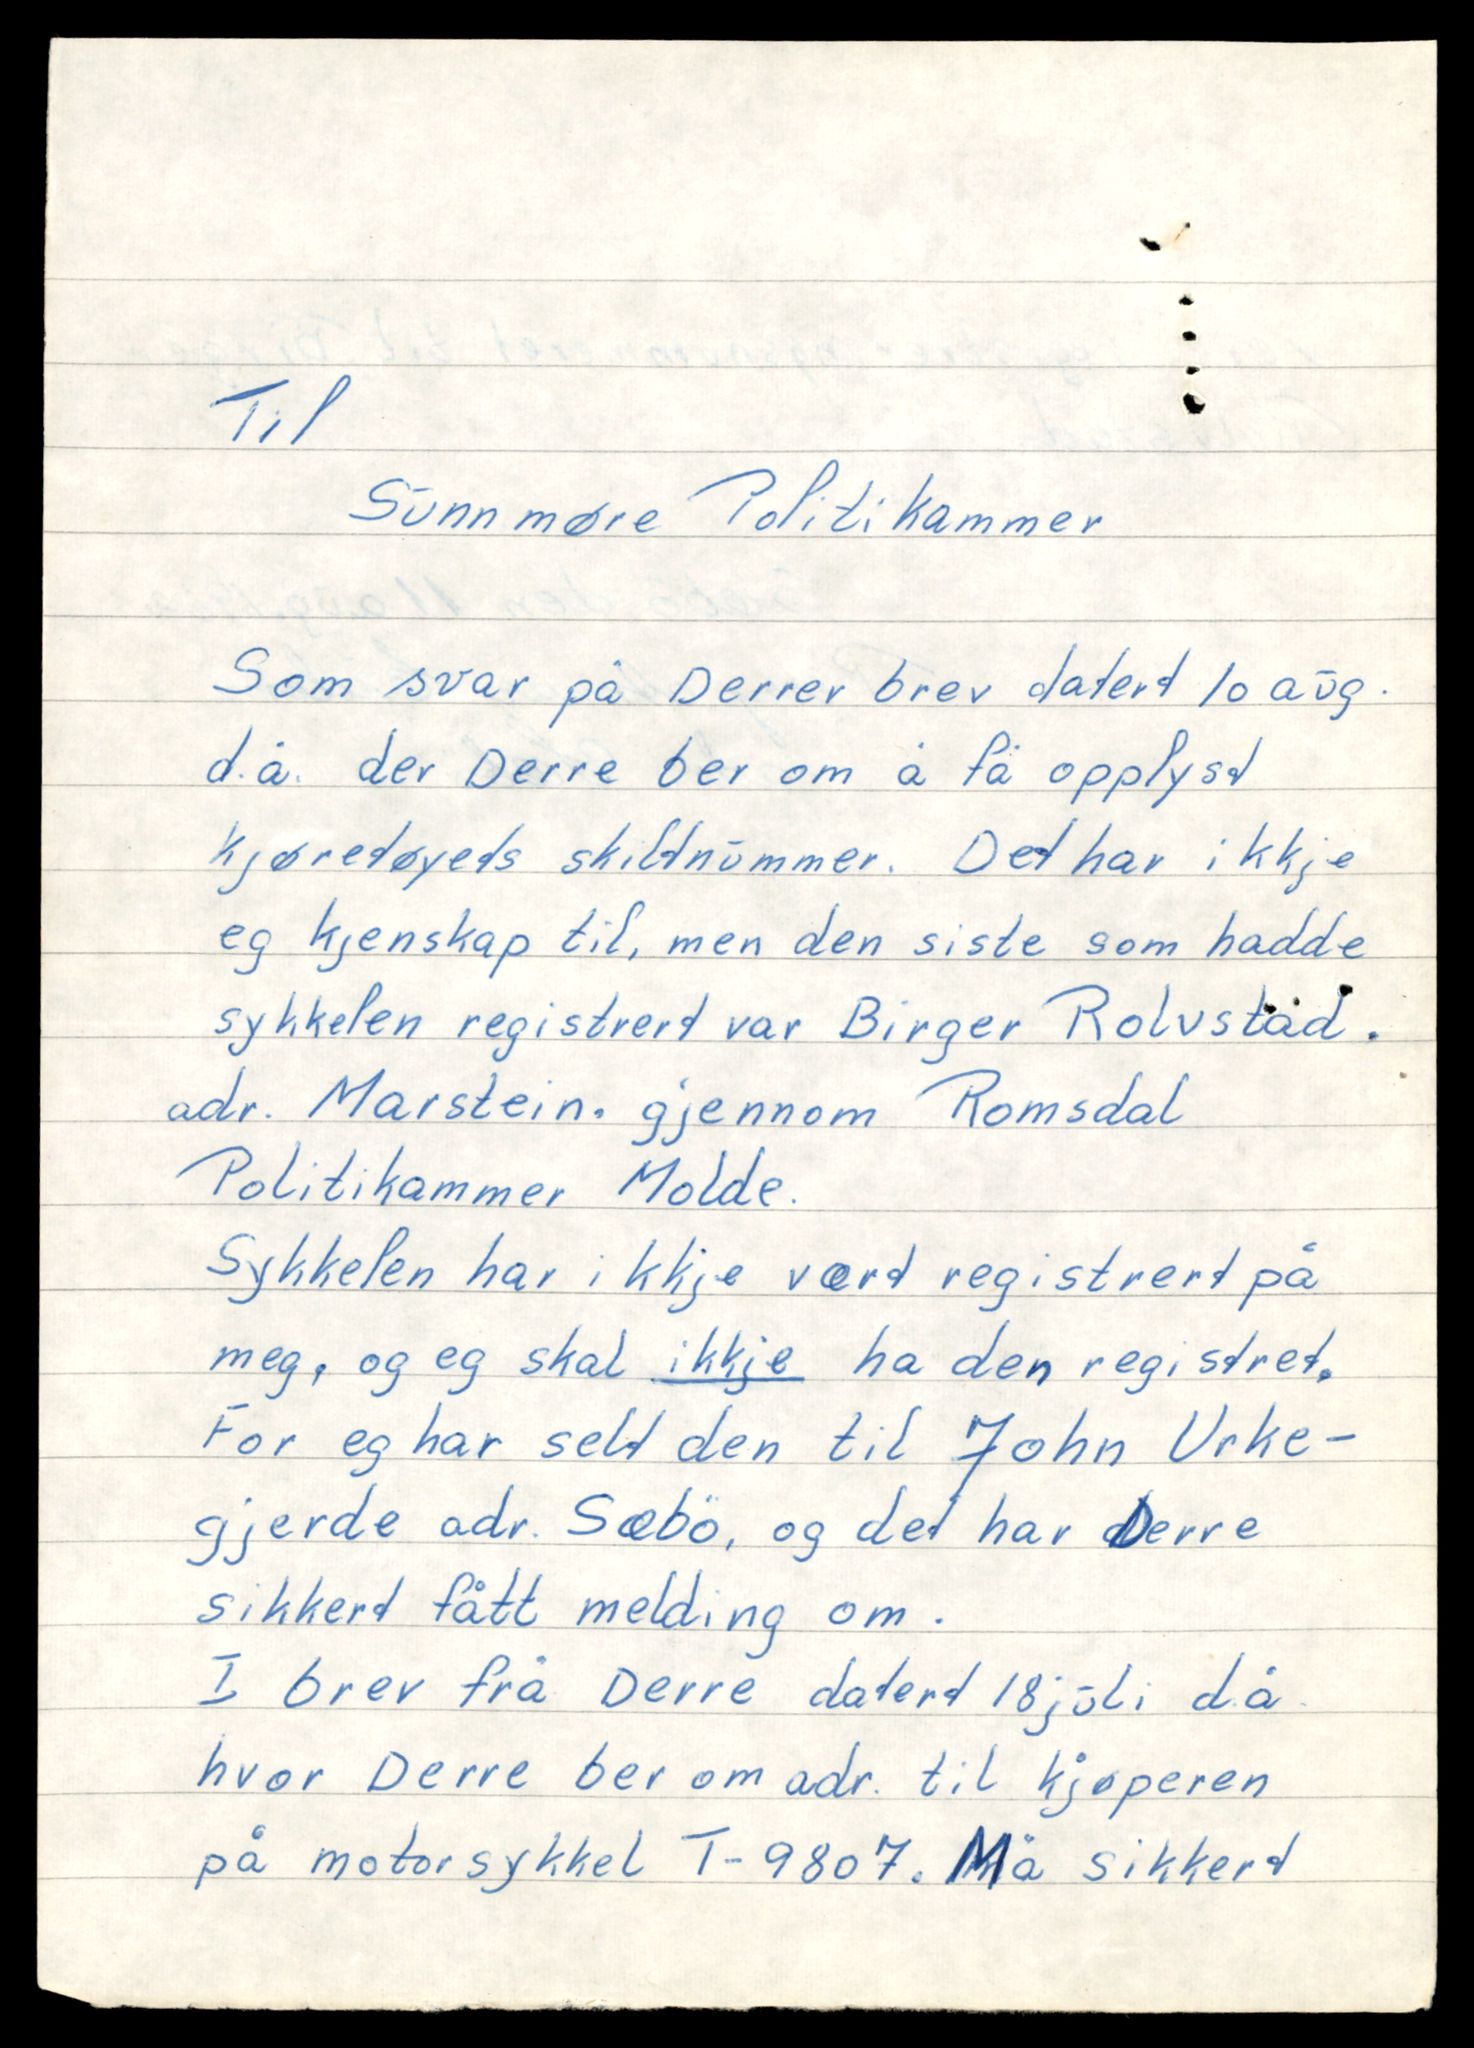 Til
Sunnmøre Politikammer
Som svar på Derrer brev datert 10 aug.
d.å. der Derre ber om å få opplyst
kjøretøyets skiltnummer. Det har ikkje
eg kjenskap til, men den siste som hadde
sykkelen registrert var Birger Rolvstad.
adr. Marstein. gjennom Romsdal
Politikammer Molde.
Sykkelen har ikkje vært registrert på
meg, og eg skal ikkje ha den registret.
For eg har selt den til John Urke-
gjerde adr. Sæbö, og det har Derre
sikkert fått melding om.
I brev frå Derre datert 18 juli d.å.
hvor Derre ber om adr. til kjøperen
på motorsykkel T-9807. Må sikkert